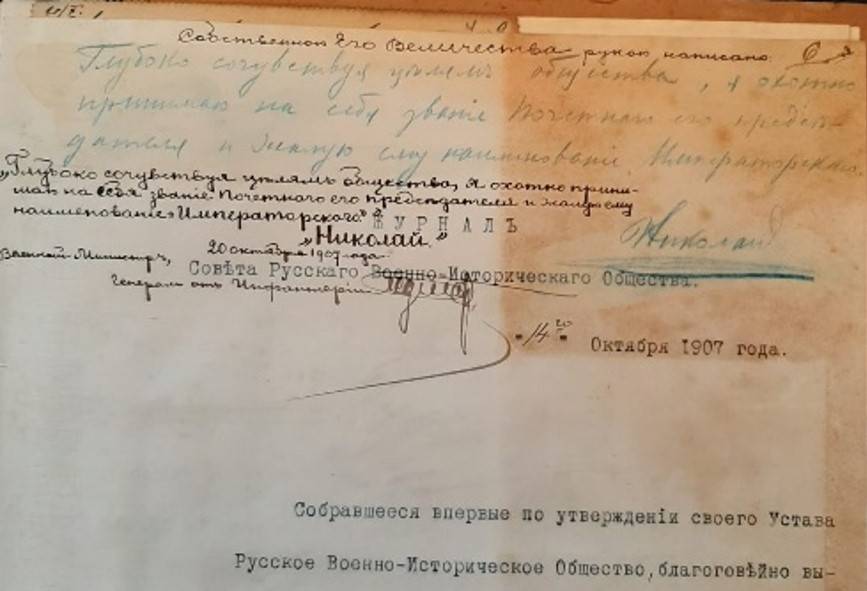 Собственною Его Величества рукою написано:
Глубоко сочувствуя цѣлямъ общества, я охотно
принимаю на себя званіе Почетнаго его предсѣ-
дателя и жалую ему наименованіе Императорскаго.
„Глубоко сочувствуя цѣлямъ общества, я охотно прини-
маю на себя званіе Почетнаго его предсѣдателя и жалую ему
наименованіе Императорскаго."
Николай
ЖУРНАЛЪ
„Николай."
Военный Министръ, 20 октября 1907 года.
Совѣта Русскаго Военно-Историческаго Общества.
Генералъ отъ Инфантеріи
"14го" Октября 1907 года.
Собравшееся впервые по утвержденіи своего Устава
Русское Военно-Историческое Общество, благоговѣйно вы-